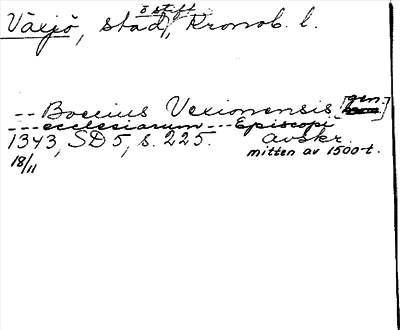 Växjö, stad, ö stift, Kronob. l.
-- Boecius Vexionensis [gen.]
--- ecclesiarum --- Episcopi
1343, SD 5, s. 225. avskr.
18/11 mitten av 1500-t.